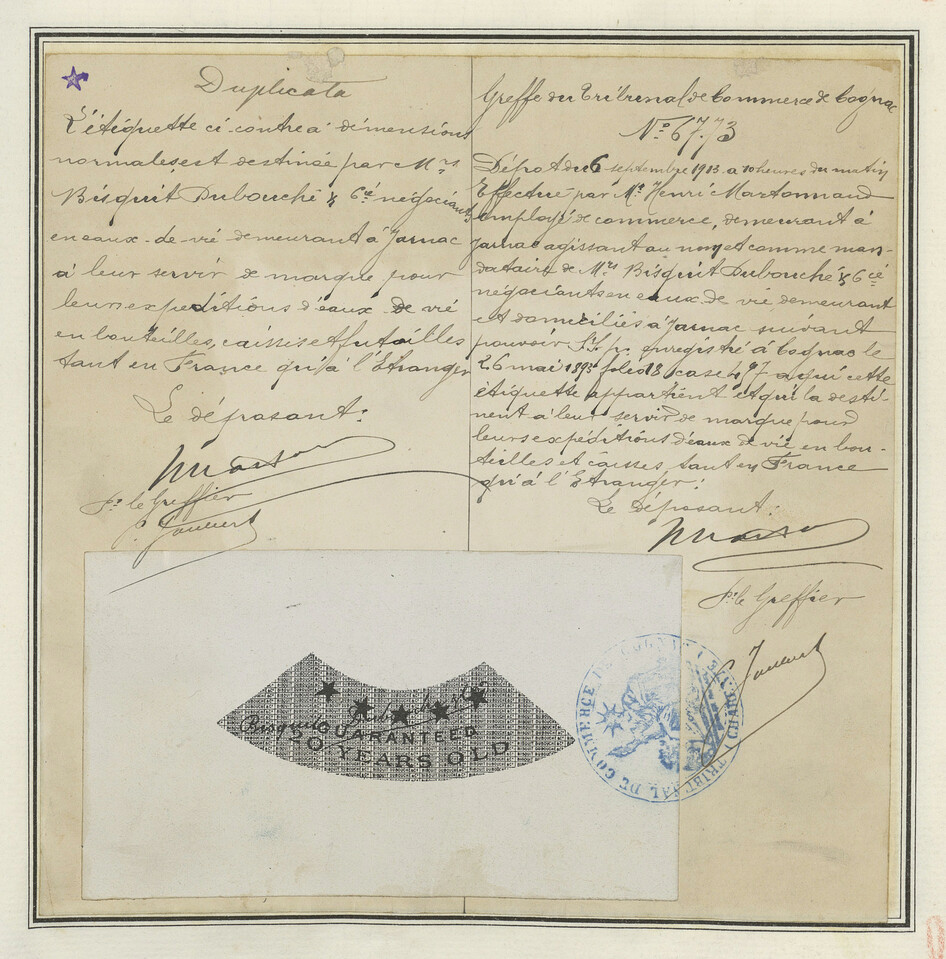 Duplicata
L'étiquette ci-contre à dimensions
normales est destinée par Mrs
Bisquit Dubouché & Cie négociants
en eaux-de-vie demeurant à Jarnac
à leur servir de marque pour
leurs expéditions d'eaux-de-vie
en bouteilles, caisses et futailles
tant en France qu'à l'Etranger
Le déposant:
Pr le Greffier
Greffe du Tribunal de Commerce de Cognac
No 6773
Dépot du 6 septembre 1913 a 10 heures du matin
Effectué par Mr Henri Martonnaud
employé de commerce, demeurant à
Jarnac agissant au nom et comme man-
dataire de Mrs Bisquit Dubouché & Cie
négociants en eaux de vie demeurant
et domiciliés à Jarnac suivant
pouvoir S.S.p. enregistré à Cognac le
26 mai 1893 folio 18 case 497 a qui cette
étiquette appartient et qui la desti-
nent à leur servir de marque pour
leurs expéditions d'eaux de vie en bou-
teilles et caisses, tant en France
qu'à l'Etranger:
Le déposant:
Pr le Greffier
Bisquit Dubouché & Co
GUARANTEED
20 YEARS OLD
TRIBUNAL DE COMMERCE DE COGNAC (CHARENTE)